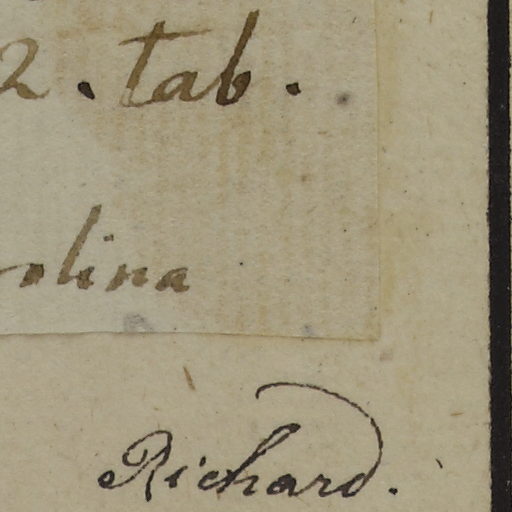 2. tab.
olina
Richard.